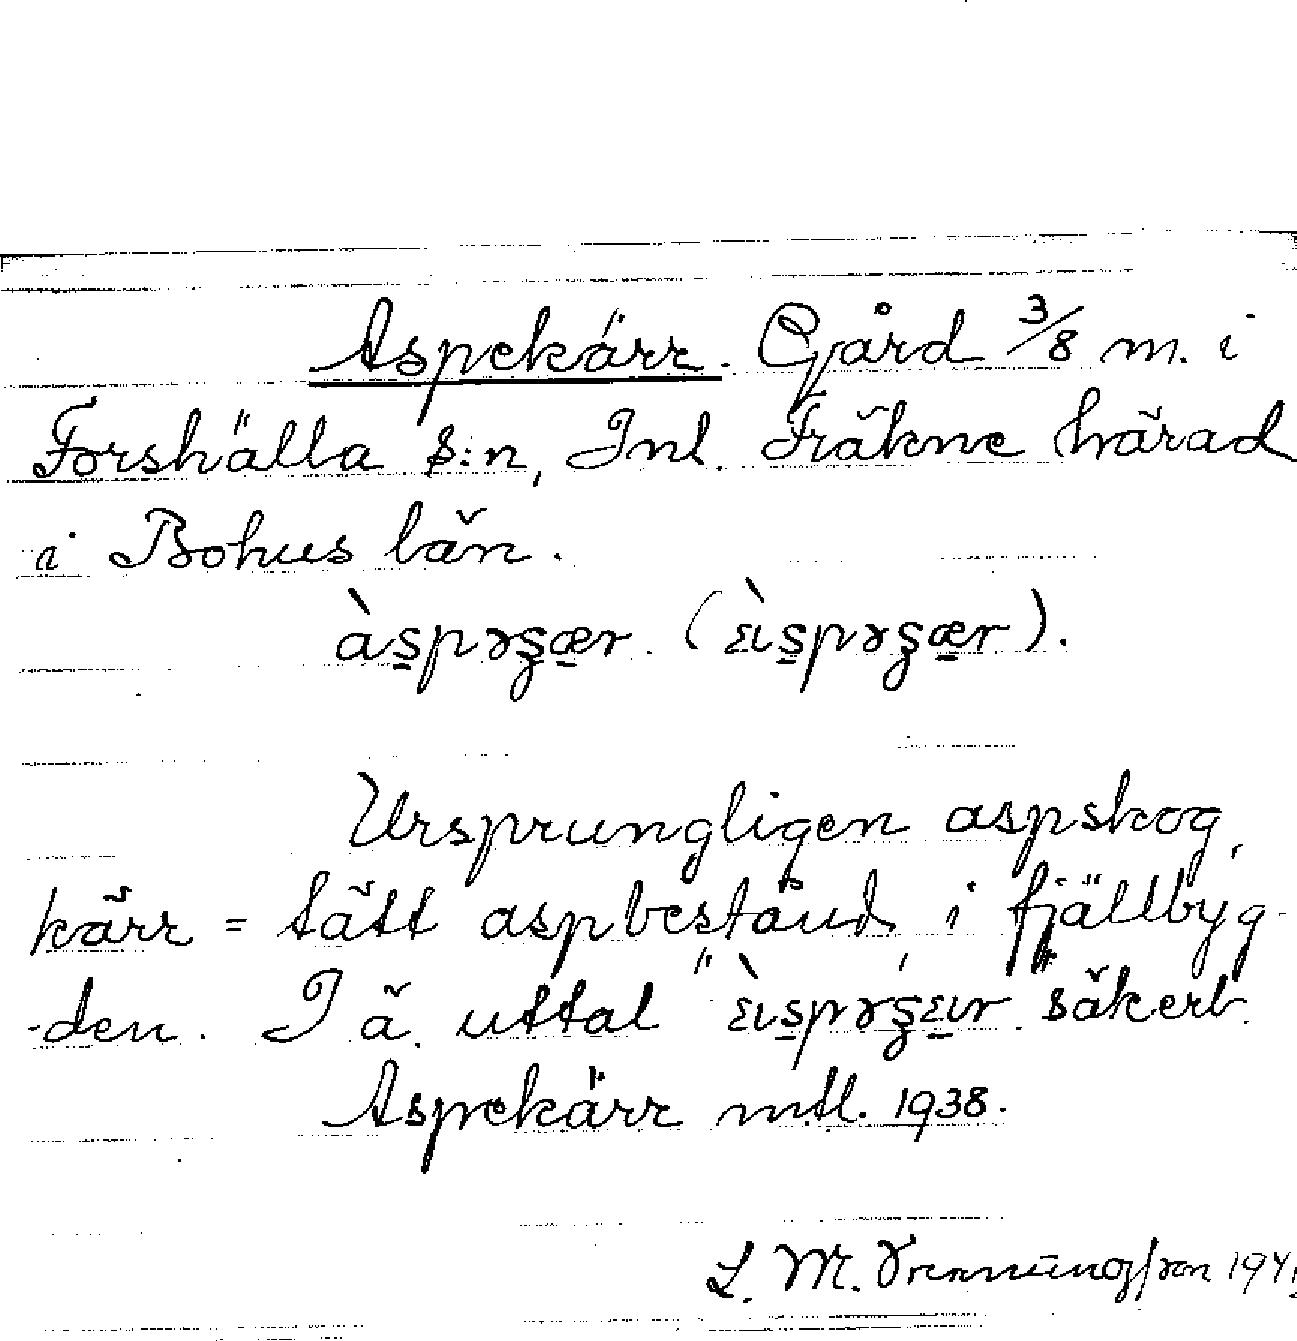 Aspekärr. Gård 3/8 m. i
Forshälla s:n, Inl. Fräkne härad
i Bohus län.
àspəʒær. (ɛ̀ıspəʒær).
Ursprungligen aspskog,
kärr = tätt aspbestånd, i fjällbyg-
-den. I ä. uttal "ɛ̀ıspəʒɛır" säkert.
Aspekärr mtl. 1938.
L. M.